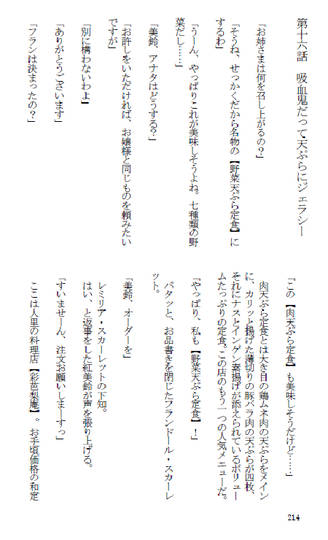 第十六話　吸血鬼だって天ぷらにジェラシー
「お姉さまは何を召し上がるの？」
「そうね、せっかくだから名物の【野菜天ぷら定食】に
するわ」
「うーん、やっぱりこれが美味しそうよね。七種類の野
菜だし……」
「美鈴、アナタはどうする？」
「お許しをいただければ、お嬢様と同じものを頼みたい
ですが」
「別に構わないわよ」
「ありがとうございます」
「フランは決まったの？」
「この【肉天ぷら定食】も美味しそうだけど……」
肉天ぷら定食とは大き目の鶏ムネ肉の天ぷらをメイン
に、カリッと揚げた薄切りの豚バラ肉の天ぷらが四枚、
それにナスとインゲン素揚げが添えられているボリュー
ムたっぷりの定食。この店のもう一つの人気メニューだ。
「やっぱり、私も【野菜天ぷら定食】！」
パタッと、お品書きを閉じたフランドール・スカーレ
ット。
「美鈴、オーダーを」
レミリア・スカーレットの下知。
はい、と返事をした紅美鈴が声を張り上げる。
「すいませーん、注文お願いしまーすっ」
ここは人里の料理店【彩芭梨庵】。お手頃価格の和定
214